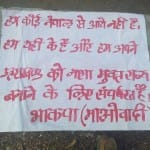 हम कोई नेपाल से आये नहीं है,
हम यही के हैं और हम अपने
झारखण्ड को नशा मुक्त राज्य
बनाने के लिए संघर्षरत हैं।
भाकपा (माओवादी